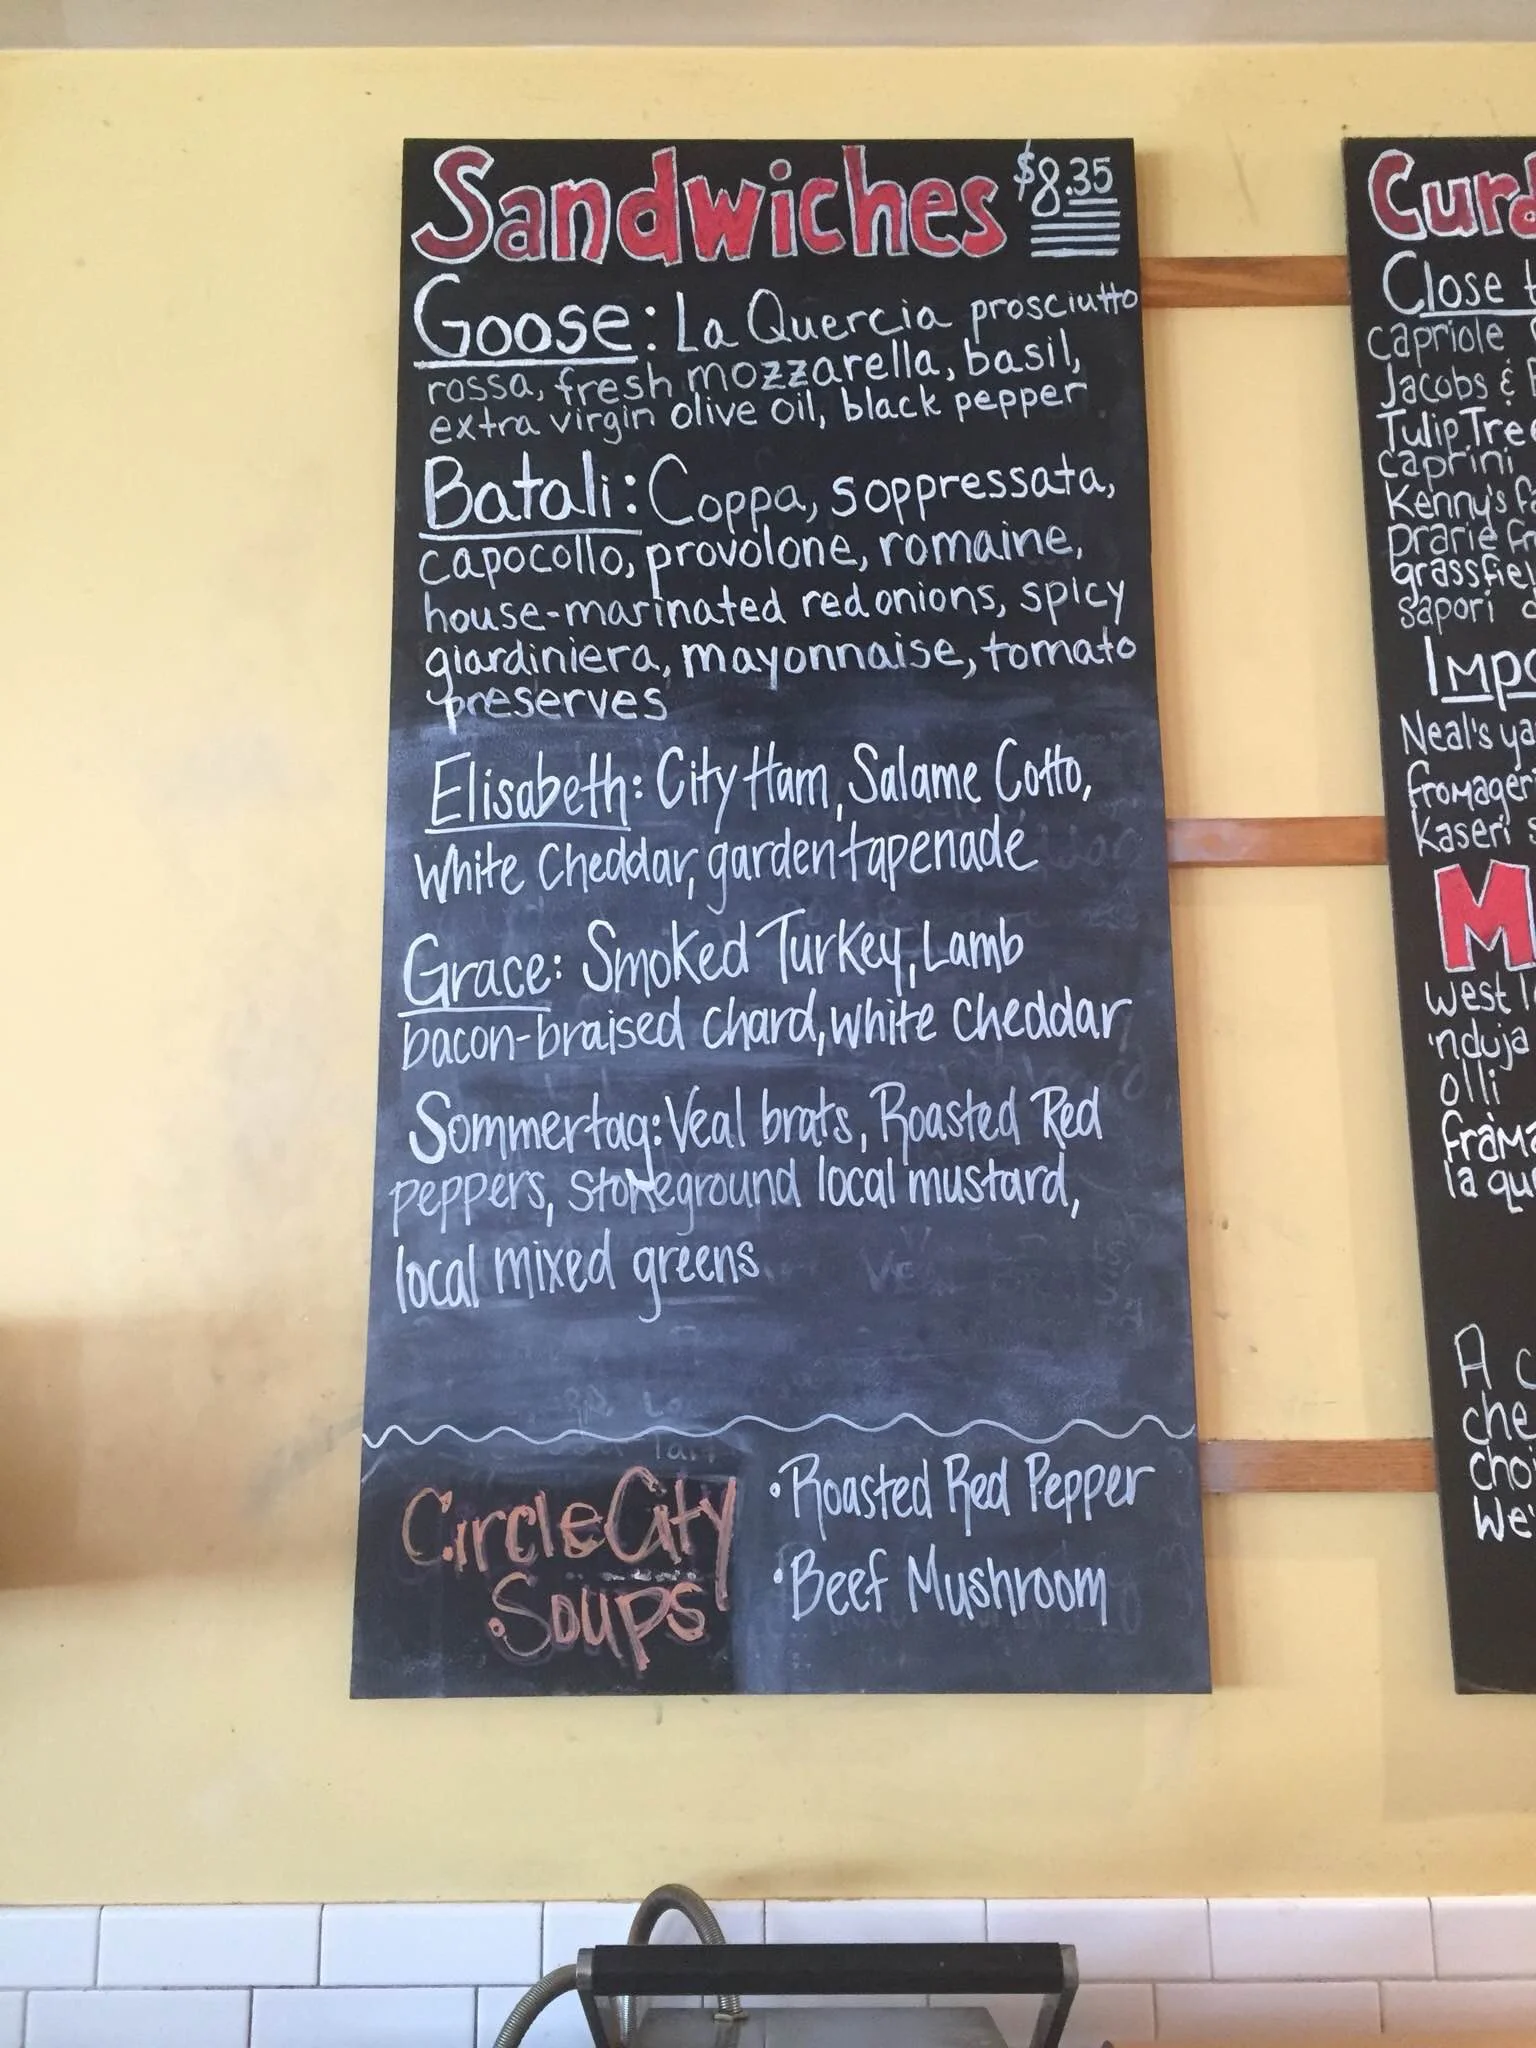 Sandwiches $8.35
Goose: La Quercia prosciutto
rossa, fresh mozzarella, basil,
extra virgin olive oil, black pepper
Batali: Coppa, soppressata,
capocollo, provolone, romaine,
house-marinated red onions, spicy
giardiniera, mayonnaise, tomato
preserves
Elisabeth: City Ham, Salame Cotto,
white Cheddar, garden tapenade
Grace: Smoked Turkey, Lamb
bacon-braised chard, white cheddar
Sommertag: Veal brats, Roasted Red
peppers, stoneground local mustard,
local mixed greens
Circle City
Soups
• Roasted Red Pepper
• Beef Mushroom
Curd
Close
capriole
Jacobs &
Tulip Tree
caprini
Kenny's
prarie
grassfiel
sapori
Impo
Neal's ya
fromager
kaseri s
M
west
'nduja
olli
frama
la qu
A c
che
choi
We'